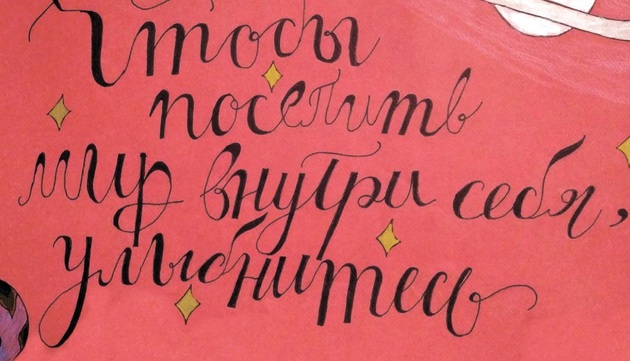 Чтобы
поселить
мир внутри себя,
улыбнитесь